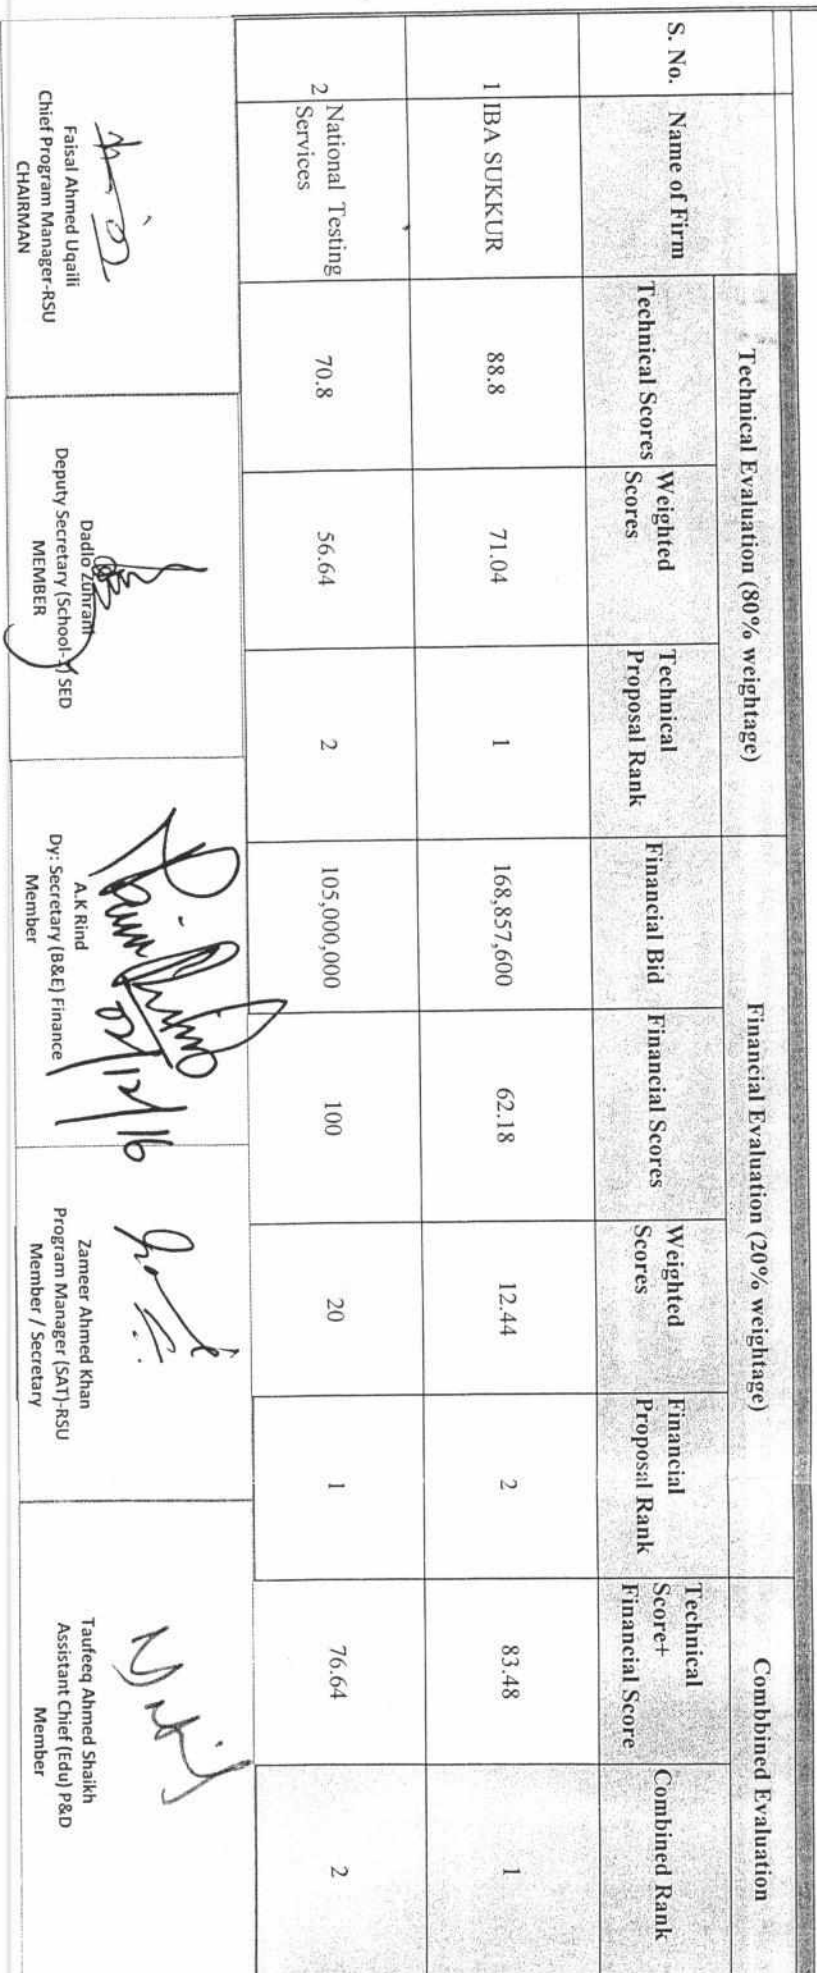 Technical Evaluation (80% weightage) Financial Evaluation (20% weightage) Combbined Evaluation
S. No. Name of Firm Technical Scores Weighted Scores Technical Proposal Rank Financial Bid Financial Scores Weighted Scores Financial Proposal Rank Technical Score+ Financial Score Combined Rank
1 IBA SUKKUR 88.8 71.04 1 168,857,600 62.18 12.44 2 83.48 1
2 National Testing Services 70.8 56.64 2 105,000,000 100 20 1 76.64 2
Faisal Ahmed Uqaili
Chief Program Manager-RSU
CHAIRMAN
Dadlo Zuhrani
Deputy Secretary (School-1) SED
MEMBER
A.K Rind
Dy: Secretary (B&E) Finance
Member
Zameer Ahmed Khan
Program Manager (SAT)-RSU
Member / Secretary
Taufeeq Ahmed Shaikh
Assistant Chief (Edu) P&D
Member